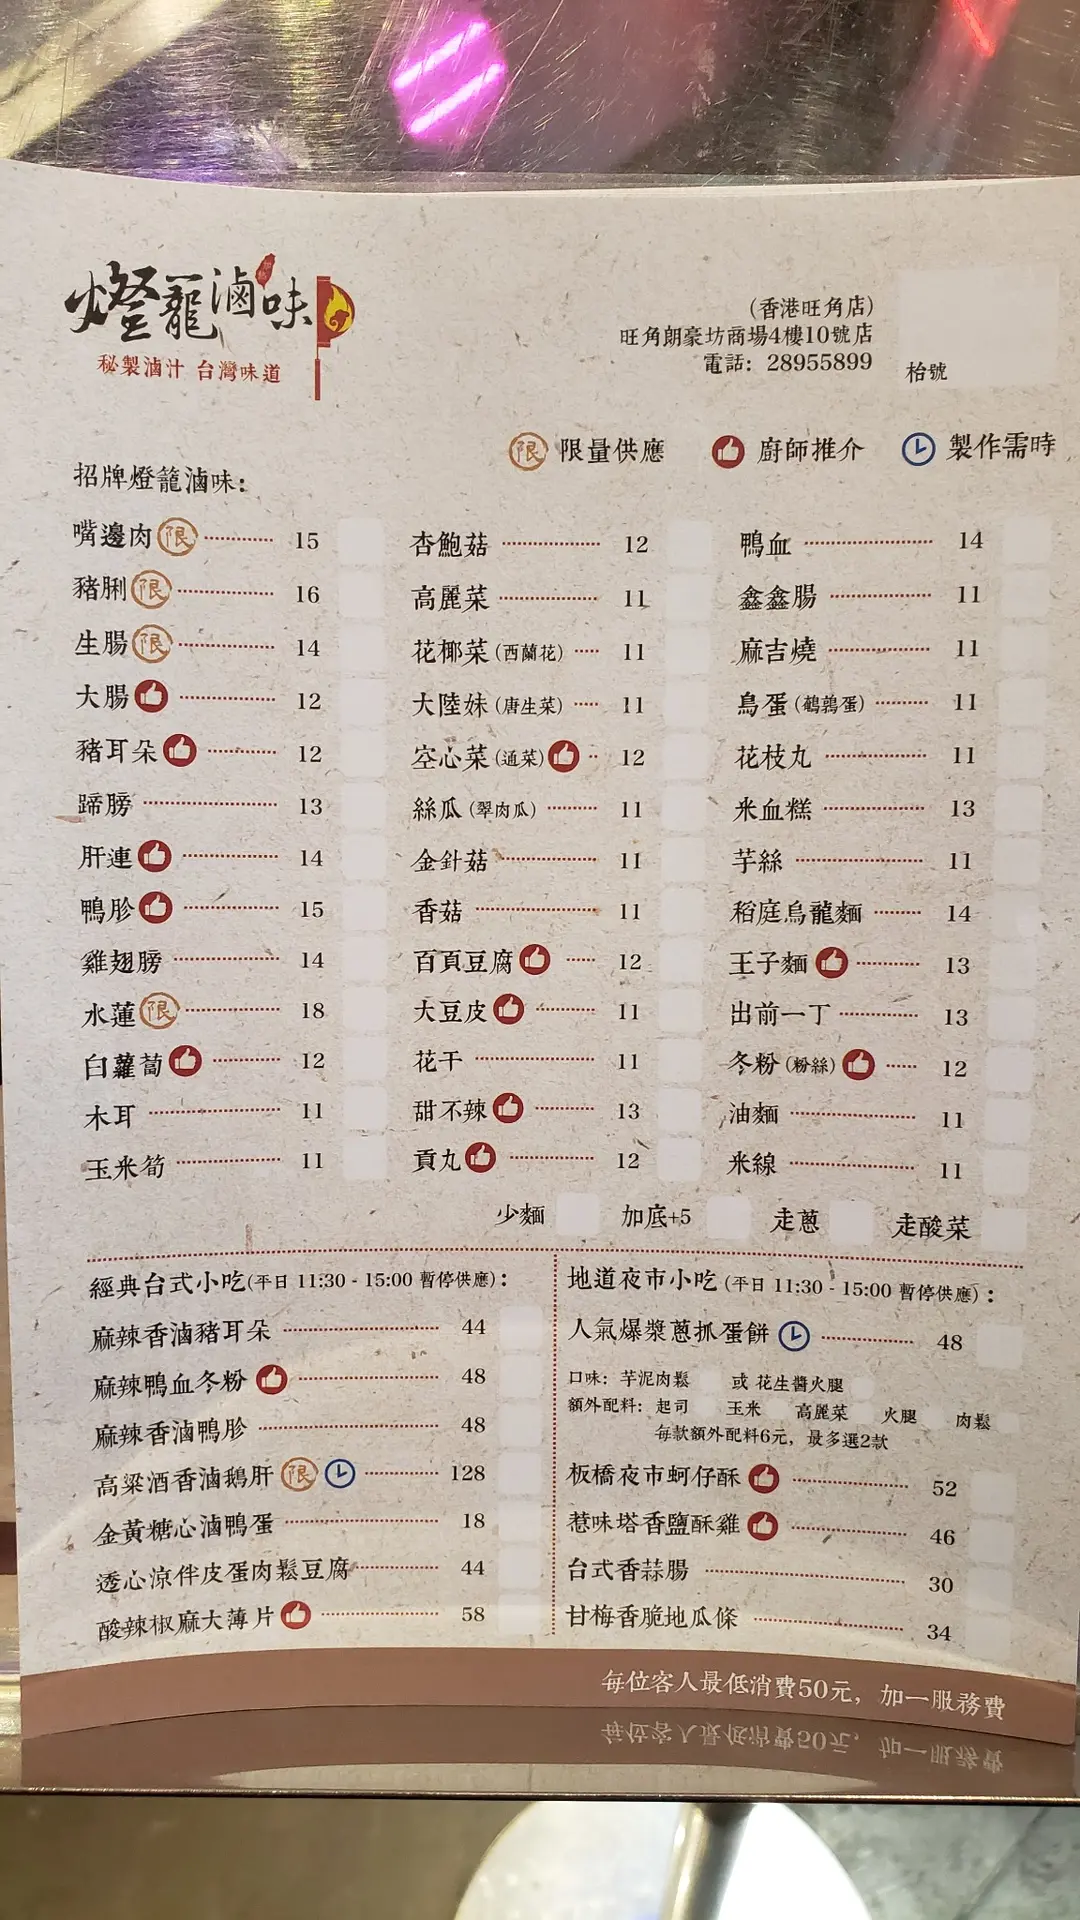 燈籠滷味
秘製滷汁 台灣味道
(香港旺角店)
旺角朗豪坊商場4樓10號店
電話: 28955899
枱號
限 限量供應 廚師推介 製作需時
招牌燈籠滷味:
嘴邊肉 限 15
豬脷 限 16
生腸 限 14
大腸 12
豬耳朵 12
蹄膀 13
肝連 14
鴨胗 15
雞翅膀 14
水蓮 限 18
白蘿蔔 12
木耳 11
玉米筍 11
杏鮑菇 12
高麗菜 11
花椰菜 (西蘭花) 11
大陸妹 (唐生菜) 11
空心菜 (通菜) 12
絲瓜 (翠肉瓜) 11
金針菇 11
香菇 11
百頁豆腐 12
大豆皮 11
花干 11
甜不辣 13
貢丸 12
鴨血 14
鑫鑫腸 11
麻吉燒 11
鳥蛋 (鵪鶉蛋) 11
花枝丸 11
米血糕 13
芋絲 11
稻庭烏龍麵 14
王子麵 13
出前一丁 13
冬粉 (粉絲) 12
油麵 11
米線 11
少麵 加底+5 走蔥 走酸菜
經典台式小吃(平日 11:30 - 15:00 暫停供應):
麻辣香滷豬耳朵 44
麻辣鴨血冬粉 48
麻辣香滷鴨胗 48
高粱酒香滷鵝肝 限 128
金黃糖心滷鴨蛋 18
透心涼伴皮蛋肉鬆豆腐 44
酸辣椒麻大薄片 58
地道夜市小吃 (平日 11:30 - 15:00 暫停供應):
人氣爆漿蔥抓蛋餅 48
口味: 芋泥肉鬆 或 花生醬火腿
額外配料: 起司 玉米 高麗菜 火腿 肉鬆
每款額外配料6元, 最多選2款
板橋夜市蚵仔酥 52
惹味塔香鹽酥雞 46
台式香蒜腸 30
甘梅香脆地瓜條 34
每位客人最低消費50元, 加一服務費